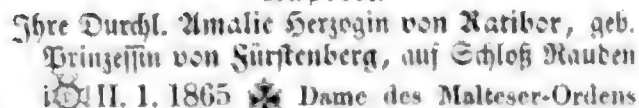 Ihre Durchl. Amalie Herzogin von Ratibor, geb.
Prinzessin von Fürstenberg, auf Schloß Rauden
II. 1. 1865 ✠ Dame des Malteser-Ordens